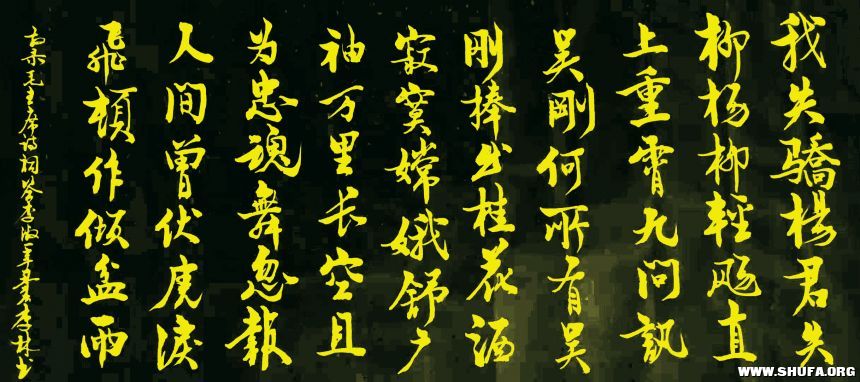 我失驕楊君失
柳杨柳輕飏直
上重霄九問訊
吴剛何所有吴
剛捧出桂花酒
寂寞嫦娥舒广
袖万里长空且
为忠魂舞忽報
人間曾伏虎淚
飛頓作倾盆雨
毛主席诗词答李淑一
WWW.SHUFA.ORG